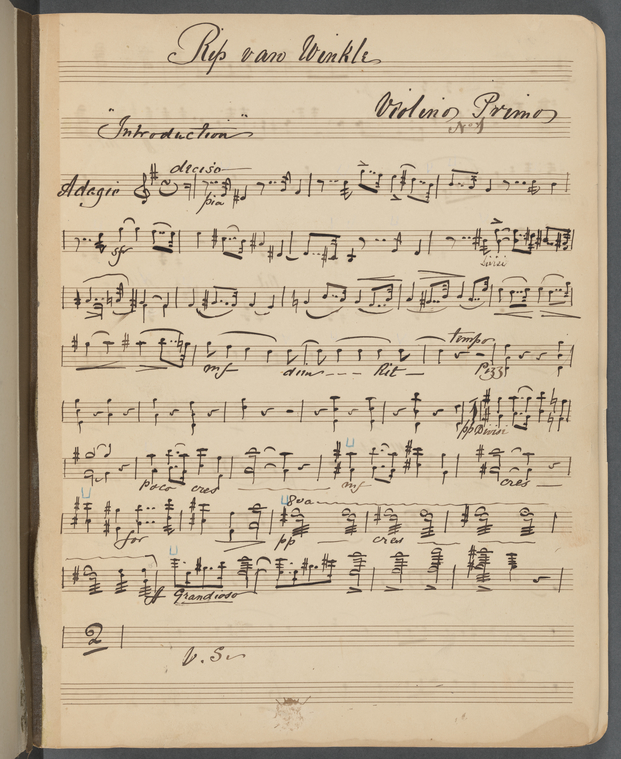 Rip van Winkle
Violino Primo
No 1
"Introduction"
deciso
Adagio
pia
sfz
Divisi
tempo
mf dim Rit Pizz
pp Divisi
poco cres mf cres
8va
for pp cres
ff Grandioso
2
V. S.